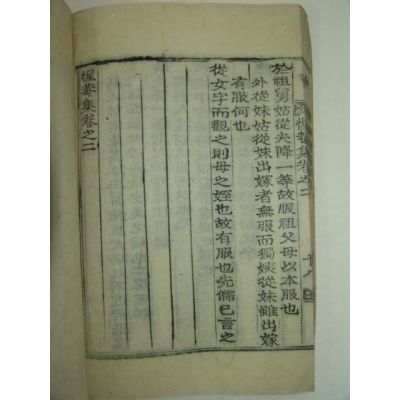 於祖舅姑從夫降一等故服祖父母以本服也
外從妹姑從妹出嫁者無服而獨姨從妹雖出嫁
有服何也
從女字而觀之則母之姪也故有服也先儒已言之
惺菴集卷之二